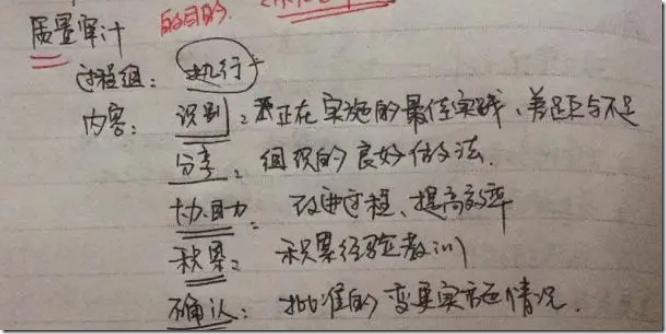 质量审计 的目的.
过程组: 执行
内容: 识别: 正在实施的最佳实践、差距与不足
分享: 组织的良好做法.
协助: 改进过程、提高效率
积累: 积累经验教训
确认: 批准的变更实施情况.